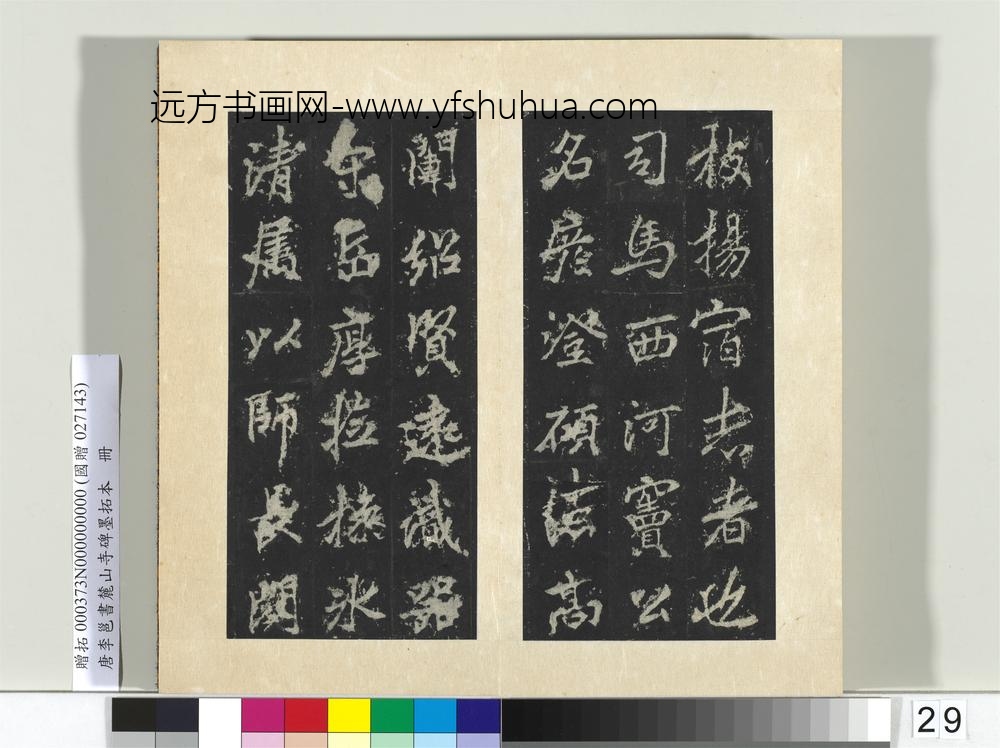 揚宿志者也
司馬西河竇公
名彥澄碩法高
闡紹賢遠識器
宇岳厚冰
清屬以師長闕
远方书画网-www.yfshuhua.com
贈拓 000373N000000000 (國贈 027143)
唐李邕書麓山寺碑墨拓本 冊
29